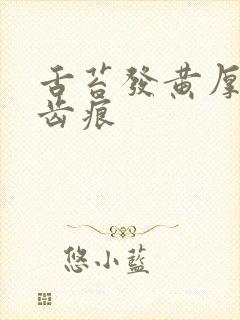 舌苔發黃厚
齿痕
悠小藍